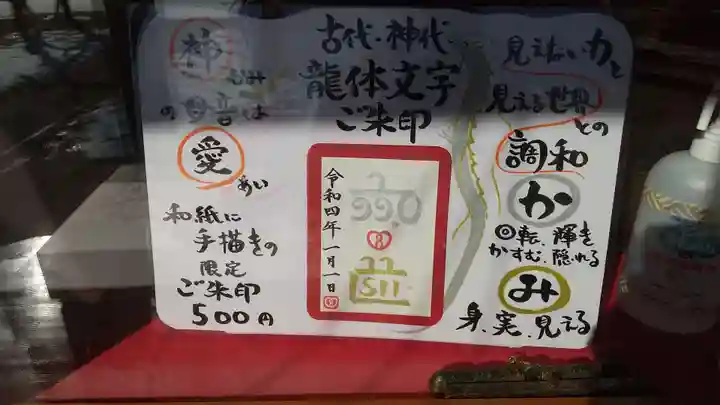 古代・神代
龍体文字
ご朱印
見えない力と
見える世界
との
調和
か
◎転、輝き
かすむ、隠れる
み
身、実、見える
令和四年一月一日
神
かみ
の母音は
愛
あい
和紙に
手描きの
限定
ご朱印
500円